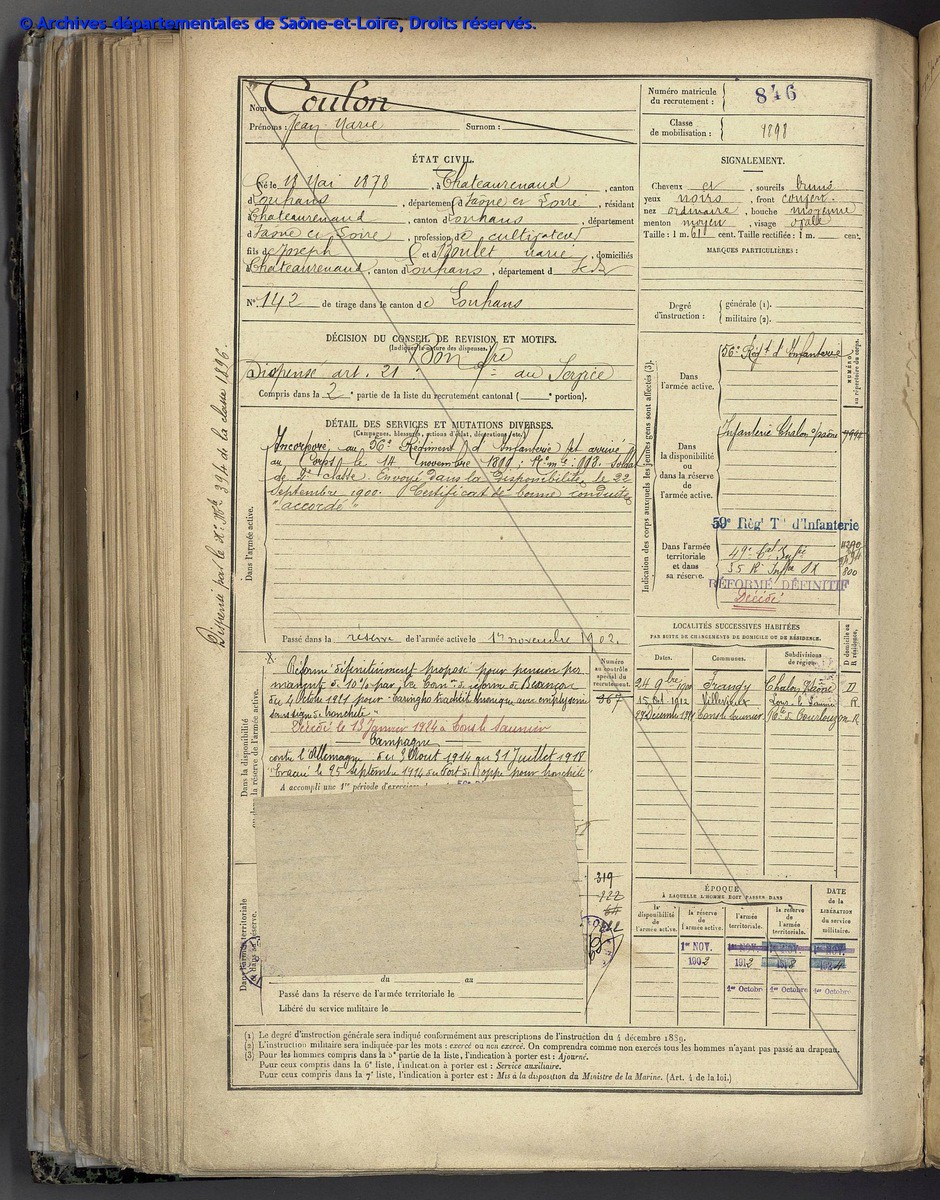 © Archives départementales de Saône-et-Loire, Droits réservés.
Nom Coulon
Prénoms : Jean Marie Surnom :
Numéro matricule du recrutement : 846
Classe de mobilisation : 1898
ÉTAT CIVIL.
Né le 11 Mai 1878, à Chateaurenaud, canton
d Louhans, département d Saône et Loire, résidant
à Chateaurenaud, canton d Louhans, département
d Saône et Loire, profession d e cultivateur
fils de Joseph et d Boulet Marie, domiciliés
à Chateaurenaud, canton d Louhans, département d S et L
N° 142 de tirage dans le canton de Louhans
SIGNALEMENT.
Cheveux et sourcils bruns
yeux noirs, front couvert.
nez ordinaire, bouche moyenne
menton moyen, visage ovale
Taille : 1 m. 61 cent. Taille rectifiée : 1 m. cent.
MARQUES PARTICULIÈRES :
Degré d'instruction : générale (1). militaire (2).
DÉCISION DU CONSEIL DE REVISION ET MOTIFS.
(Indiquer la nature des dispenses.)
Bon
Dispensé art. 21 : au Service
Compris dans la 2e partie de la liste du recrutement cantonal ( e portion).
DÉTAIL DES SERVICES ET MUTATIONS DIVERSES.
(Campagnes, blessures, actions d'éclat, décorations, etc.)
Dispensé par le N° Mle 394 de la classe 1896.
Dans l'armée active.
Incorporé au 56e Régiment d'Infanterie et arrivé
au Corps le 14 novembre 1899. Soldat
de 2e classe. Envoyé dans la disponibilité le 22
Septembre 1900. Certificat de bonne conduite
"accordé"
Passé dans la réserve de l'armée active le 1er novembre 1902.
Indication des corps auxquels les jeunes gens sont affectés (3).
NUMÉRO au répertoire du corps.
Dans l'armée active.
56e Régt d'Infanterie
Dans la disponibilité ou dans la réserve de l'armée active.
Infanterie Chalon s/Saône
59e Régt Tal d'Infanterie
Dans l'armée territoriale et dans sa réserve.
49e
35 R 800
RÉFORMÉ DÉFINITIF
Décédé
LOCALITÉS SUCCESSIVES HABITÉES
PAR SUITE DE CHANGEMENTS DE DOMICILE OU DE RÉSIDENCE.
Dates. Communes. Subdivisions de région. D domicile ou R résidence.
24 9bre 1900 Frangy Chalon s/Saône D
15 Oct 1912 Villevieux Lons-le-Saunier R
Lons le Saunier R
Dans la disponibilité ou dans la réserve de l'armée active.
Numéro au contrôle spécial du recrutement.
367
Réformé définitivement proposé pour pension per
manente de 10% par la Comon de réforme de Besançon
du 4 Octobre 1921 pour "Laryngho trachéite chronique avec emphysème
sans signe de bronchite"
Décédé le 13 Janvier 1924 à Lons le Saunier
Campagne
contre l'Allemagne du 3 Août 1914 au 31 Juillet 1918
Evacué le 25 septembre 1914 du Fort de Roppe pour bronchite
A accompli une 1re période d'exercices
Dans l'armée territoriale et dans sa réserve.
319
122
du au
Passé dans la réserve de l'armée territoriale le
Libéré du service militaire le
ÉPOQUE
A LAQUELLE L'HOMME DOIT PASSER DANS
la disponibilité de l'armée active. la réserve de l'armée active. l'armée territoriale. la réserve de l'armée territoriale.
DATE de la LIBÉRATION du service militaire.
1er NOV. 1902
1912
1er Octobre 1er Octobre 1er Octobre
(1) Le degré d'instruction générale sera indiqué conformément aux prescriptions de l'instruction du 4 décembre 1889.
(2) L'instruction militaire sera indiquée par les mots : exercé ou non exercé. On comprendra comme non exercés tous les hommes n'ayant pas passé au drapeau.
(3) Pour les hommes compris dans la 5e partie de la liste, l'indication à porter est : Ajourné.
Pour ceux compris dans la 6e liste, l'indication à porter est : Service auxiliaire.
Pour ceux compris dans la 7e liste, l'indication à porter est : Mis à la disposition du Ministre de la Marine. (Art. 4 de la loi.)